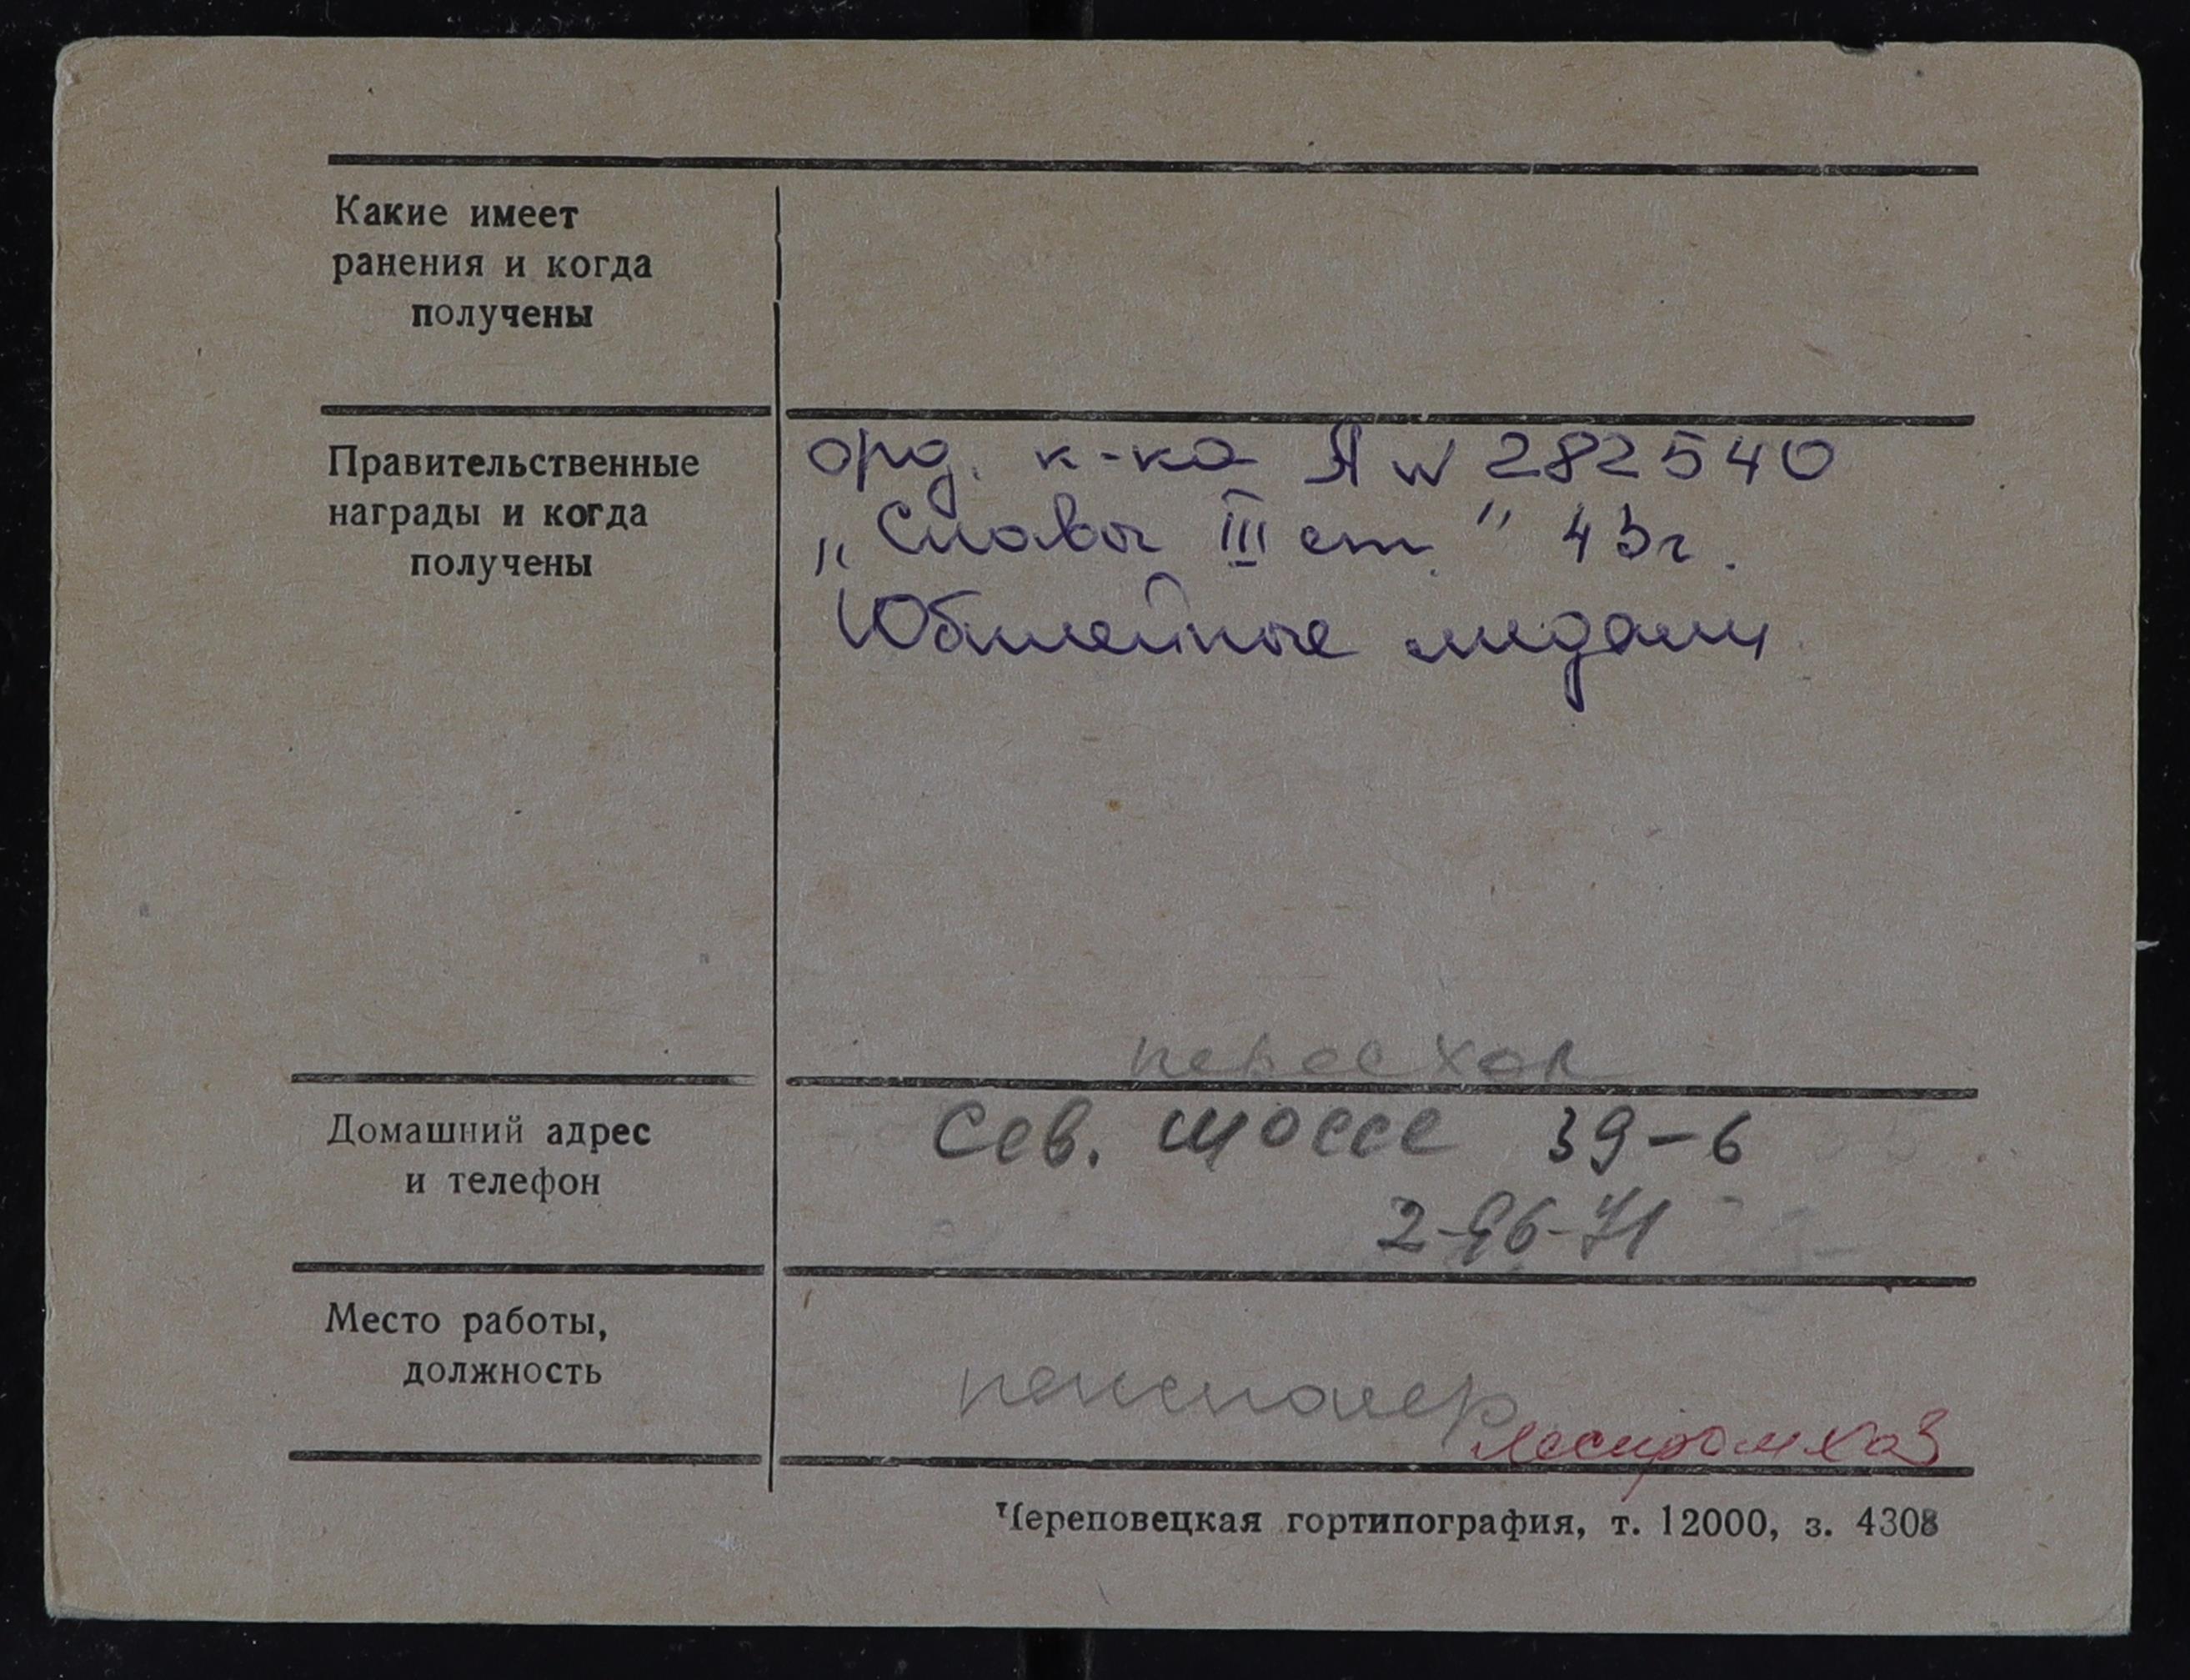 Какие имеет
ранения и когда
получены
Правительственные
награды и когда
получены
орд. к-ка Я № 282540
„Славы III ст." 43г.
Юбилейные медали
переехал
Домашний адрес
и телефон
Сев. шоссе 39-6
2-96-71
Место работы,
должность
пенсионер
леспромхоз
Череповецкая гортипография, т. 12000, з. 4308